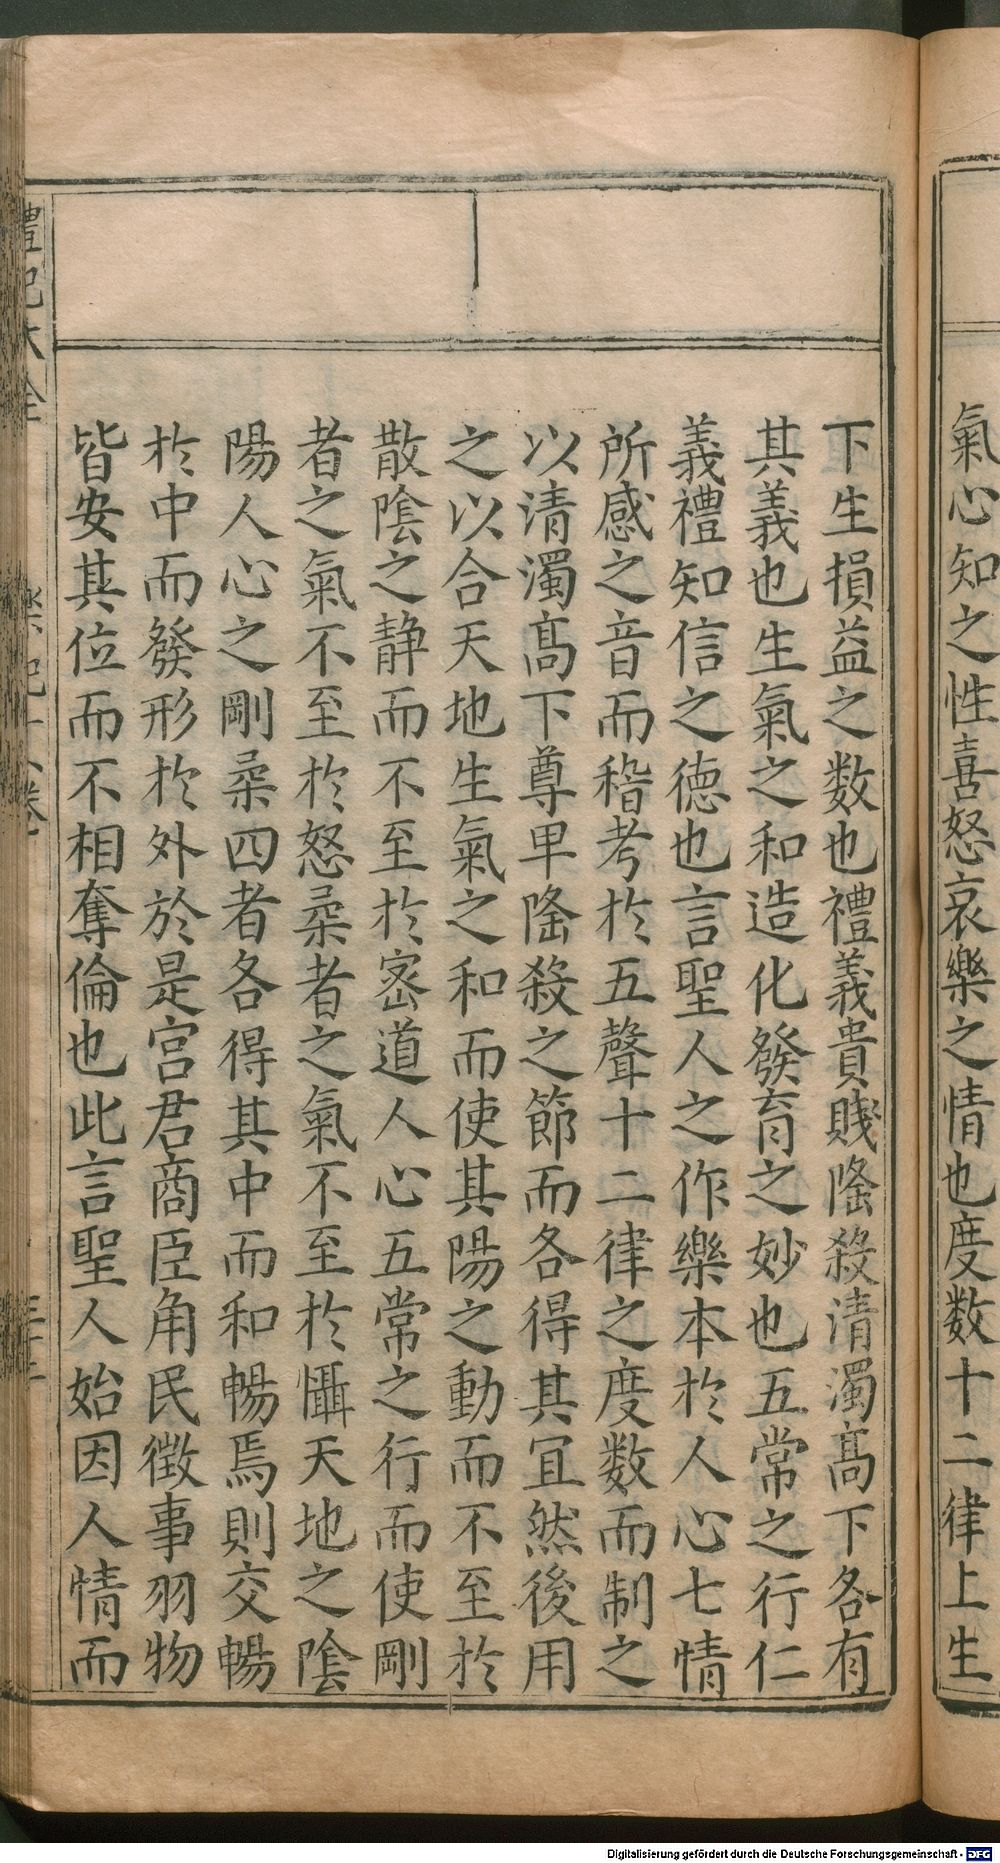 氣心知之性喜怒哀樂之情也度数十二律上生
下生損益之数也禮義貴賤隆殺清濁髙下各有
其義也生氣之和造化發育之妙也五常之行仁
義禮知信之德也言聖人之作樂本於人心七情
所感之音而稽考於五聲十二律之度数而制之
以清濁髙下尊卑隆殺之節而各得其宜然後用
之以合天地生氣之和而使其陽之動而不至於
散陰之静而不至於密道人心五常之行而使剛
者之氣不至於怒柔者之氣不至於懾天地之陰
陽人心之剛柔四者各得其中而和暢焉則交暢
於中而發形於外於是宫君商臣角民徵事羽物
皆安其位而不相奪倫也此言聖人始因人情而
禮記大全
樂記十八卷
Digitalisierung gefördert durch die Deutsche Forschungsgemeinschaft - DFG